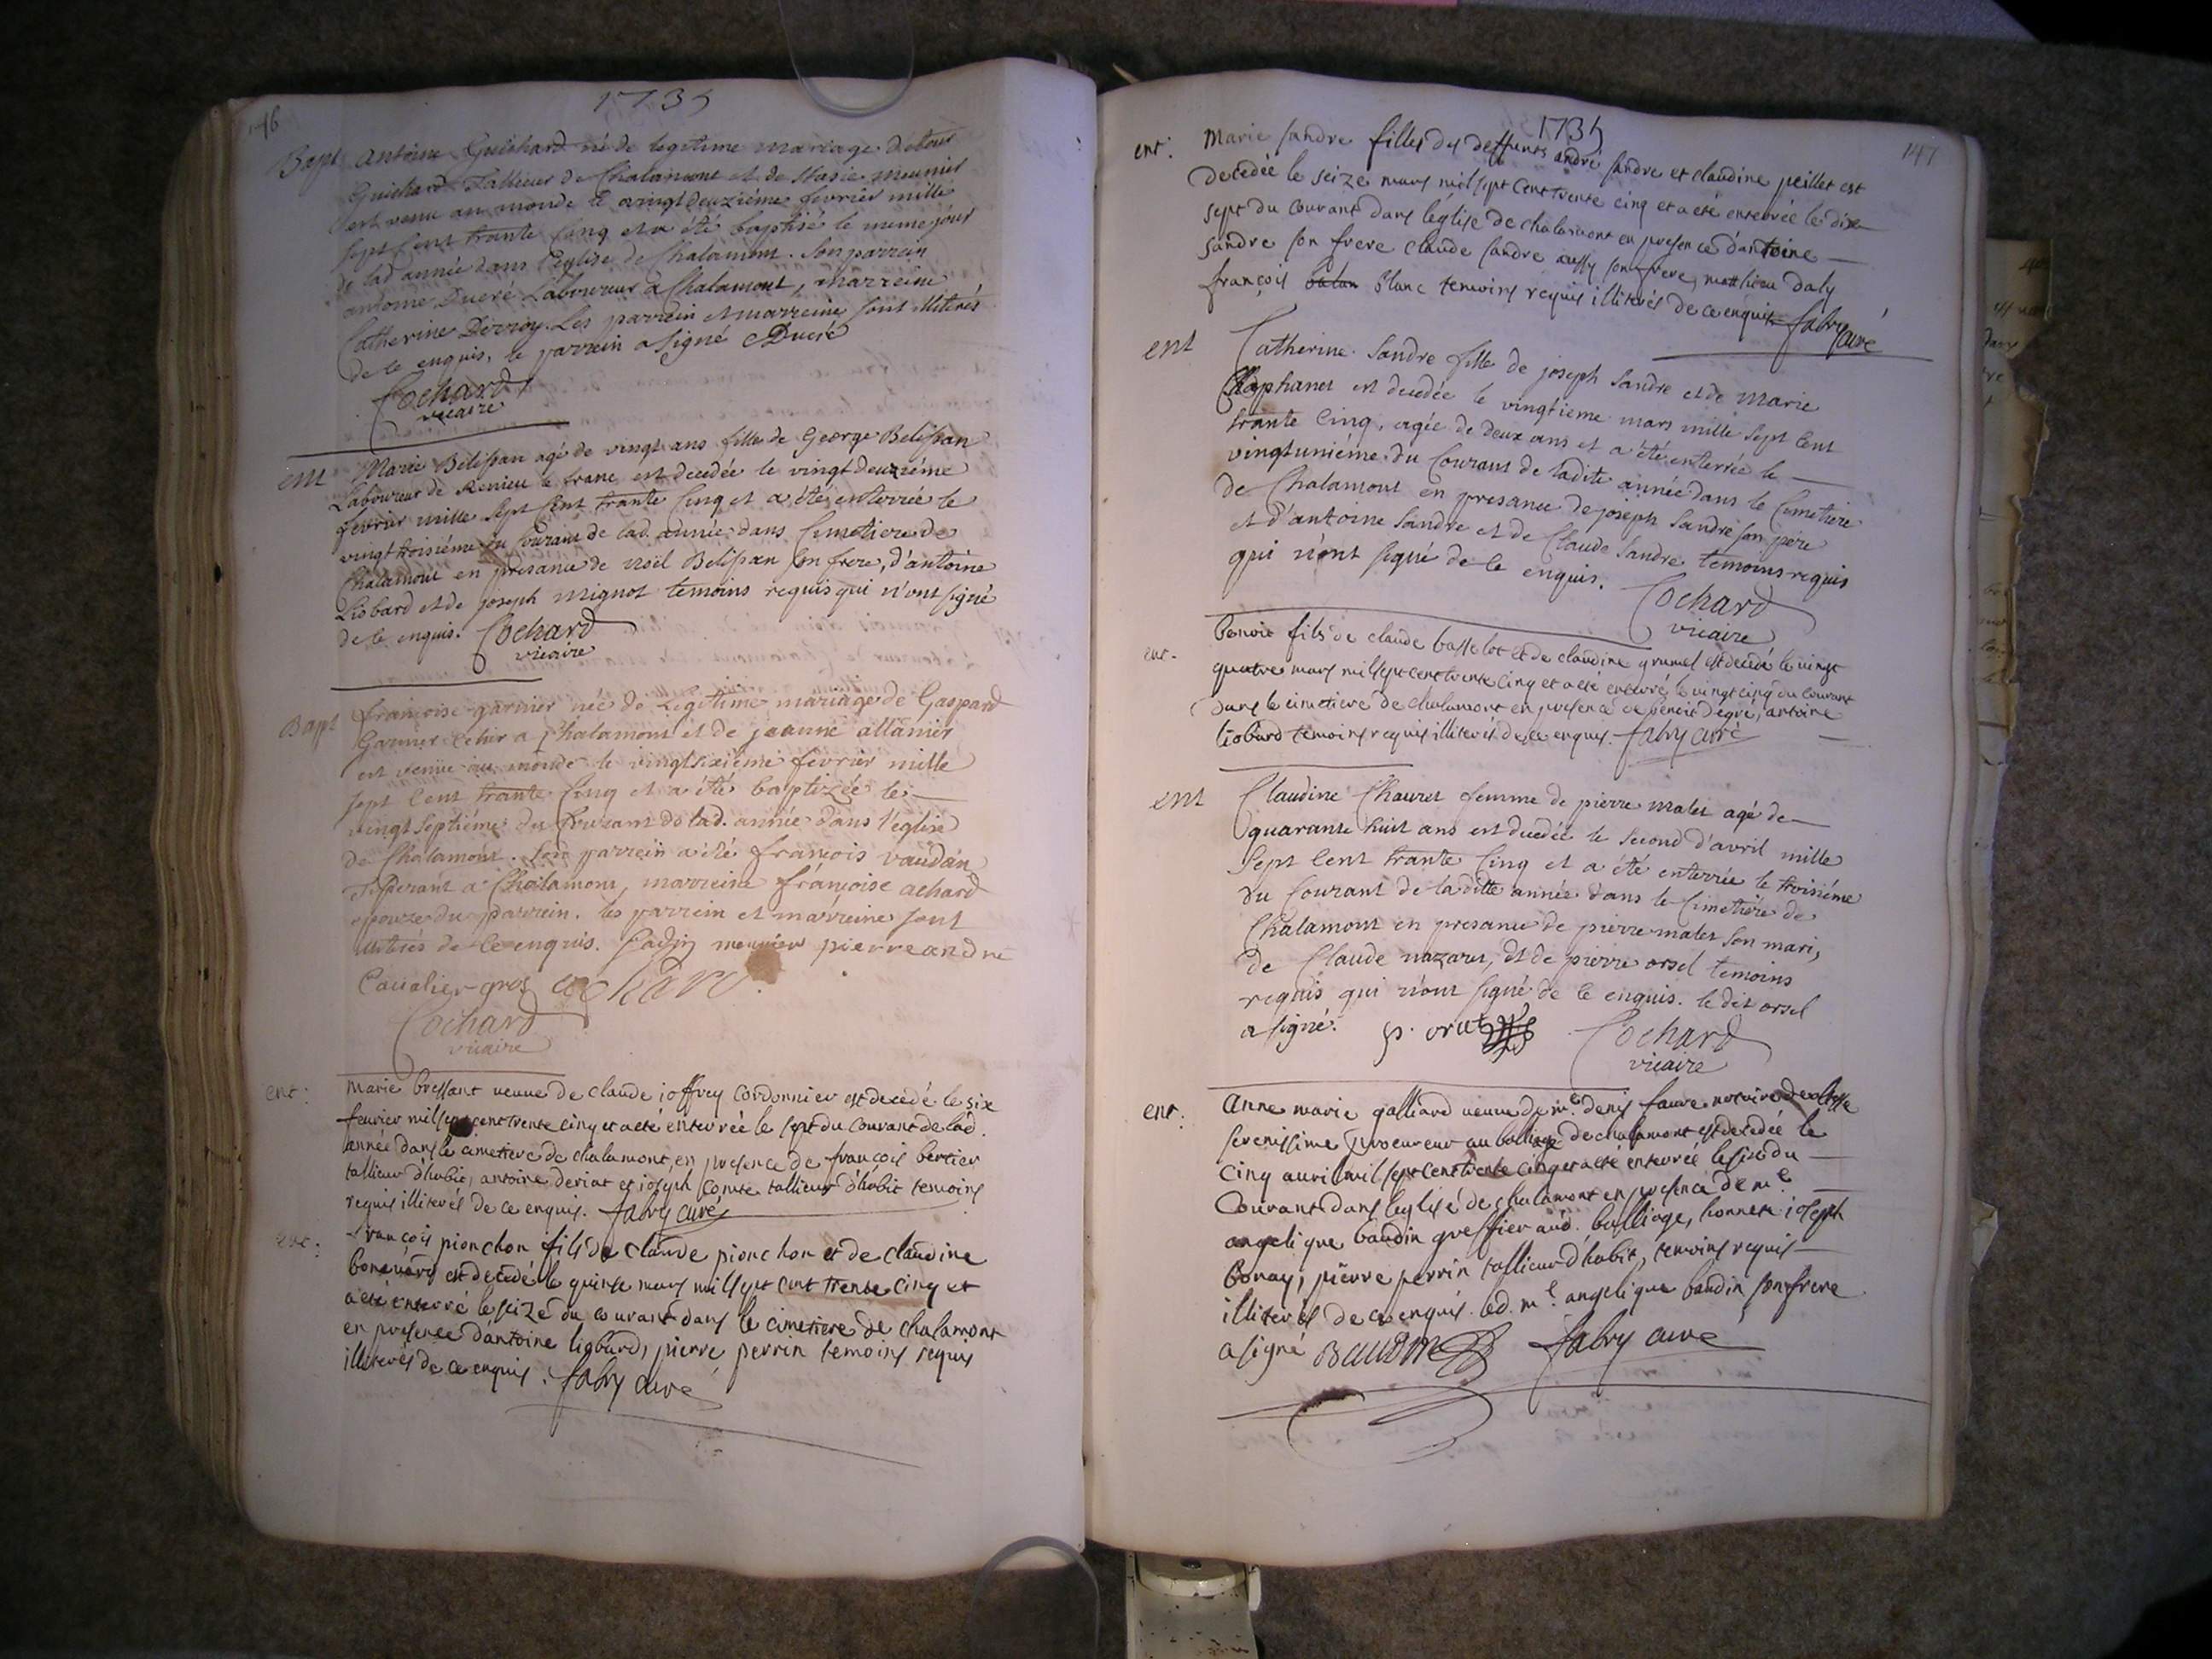 146
1735
Bapt Antoine Guichard né de legitime mariage
Guichard Tallieur de Chalamont et de Stasie meunier
est venu au monde le vingtdeuzième fevrier mille
sept cent trante cinq et a été baptisé le meme jour
de lad année dans l'eglise de Chalamont. Son parrein
antoine Ducré Laboureur a Chalamont, marreine
Catherine Derroy. Les parrein et marreine sont illiterés
de ce enquis, le parrein a signé Ducré
Cochard
vicaire
ent Marie Belispan agé de vingt ans fille de George Belispan
Laboureur de le franc est decedée le vingtdeuzième
fevrier mille sept cent trante cinq et a été enterrée le
vingttroisième du courant de lad. année dans Cimetiere de
Chalamont en presance de Belispan son frere, d'antoine
Liobard et de joseph mignot temoins requis qui n'ont signé
de ce enquis. Cochard
vicaire
Bapt françoise garnier née de Legitime mariage de Gaspard
Garnier a Chalamont et de jeanne allanier
est venüe au monde le vingtsixième fevrier mille
sept cent trante cinq et a été baptizée le
vingtseptième du courant de lad. année dans l'eglise
de Chalamont. son parrein a été françois vaudan
Tisserant a Chalamont, marreine françoise achard
epouze du parrein. les parrein et marreine sont
illiterés de ce enquis. meunier pierre andre
Cavalier gros achard
Cochard
vicaire
ent: marie bressant veuve de claude joffrey Cordonnier est decedé le six
fevrier mil sept cent trente cinq et a eté enterrée le sept du courant de lad.
année dans le cimetiere de chalamont, en presence de françois bertier
tallieur d'habit, antoine deriat et joseph comte tallieur d'habit temoins
requis illiterés de ce enquis. fabry curé
ent: françois pionchon fils de claude pionchon et de claudine
bonnevard est decedé le quinse mars mil sept cent trente cinq et
a eté enterré le seize du courant dans le cimetiere de chalamont
en presence d'antoine liobard, pierre perrin temoins requis
illiterés de ce enquis. fabry curé
1735
147
ent: Marie sandre filles des deffunts andré sandre et claudine peillet est
decedée le seize mars mil sept cent trente cinq et a eté enterrée le dix
sept du courant dans l'eglise de chalamont en presence d'antoine
sandre son frere claude sandre aussy son frere, matthieu daly
françois balan blanc temoins requis illiterés de ce enquis fabry curé
ent Catherine Sandre fille de joseph Sandre et de Marie
Chaphanet est decedée le vingtième mars mille sept cent
trante cinq, agée de deux ans et a été enterrée le
vingtunième du courant de ladite année dans le Cimetiere
de Chalamont en presance de joseph Sandre son pere
et d'antoine Sandre et de Claude Sandre temoins requis
qui n'ont signé de ce enquis. Cochard
vicaire
ent. benoit fils de claude basselot et de claudine grumel est decedé le vingt
quatre mars mil sept cent trente cinq et a eté enterré le vingt cinq du courant
dans le cimetiere de chalamont en presence de benoit degré, antoine
liobard temoins requis illiterés de ce enquis. fabry curé
ent Claudine Chauret femme de pierre malet agé de
quarante huit ans est decedée le second d'avril mille
sept cent trante cinq et a été enterrée le troisième
du courant de laditte année dans le Cimetière de
Chalamont en presance de pierre malet son mari,
de Claude nazaret, et de pierre orsel temoins
requis qui n'ont signé de ce enquis. le dit orsel
a signé. p. Cochard
vicaire
ent: Anne marie galliard veuve de me. denis faure notaire de
serenissime procureur au balliage de chalamont est decedée le
cinq avril mil sept cent trente cinq et a eté enterrée le six du
courant dans l'eglise de chalamont en presence de me.
angelique baudin greffier aud. balliage, honnete joseph
bonay, pierre perrin tallieur d'habit, temoins requis
illiterés de ce enquis. led. me. angelique baudin son frere
a signé Baudin fabry curé